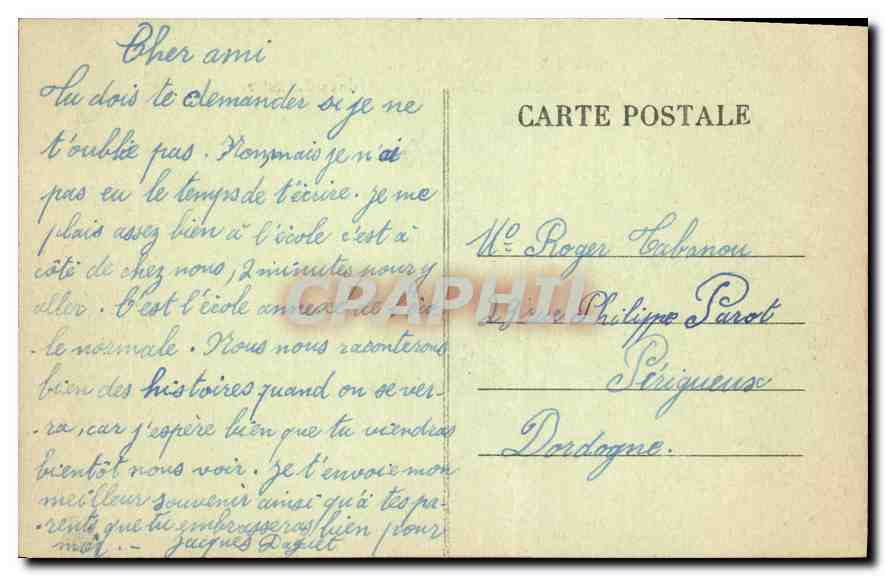 Cher ami
Tu dois te demander si je ne
t'oublie pas. Non, mais je n'ai
pas eu le temps de t'écrire. Je me
plais assez bien à l'école c'est à
côté de chez nous, 2 minutes pour y
aller. C'est l'école annexe de
-le normale. Nous nous raconterons
bien des histoires quand on se ver-
-ra, car j'espère bien que tu viendras
bientôt nous voir. Je t'envoie mon
meilleur souvenir ainsi qu'à tes pa-
-rents que tu embrasseras bien pour
moi. - Jacques Daguet
CARTE POSTALE
Mo= Roger Tabanou
Philippe Parot
Périgueux
Dordogne.
CPAPHIL